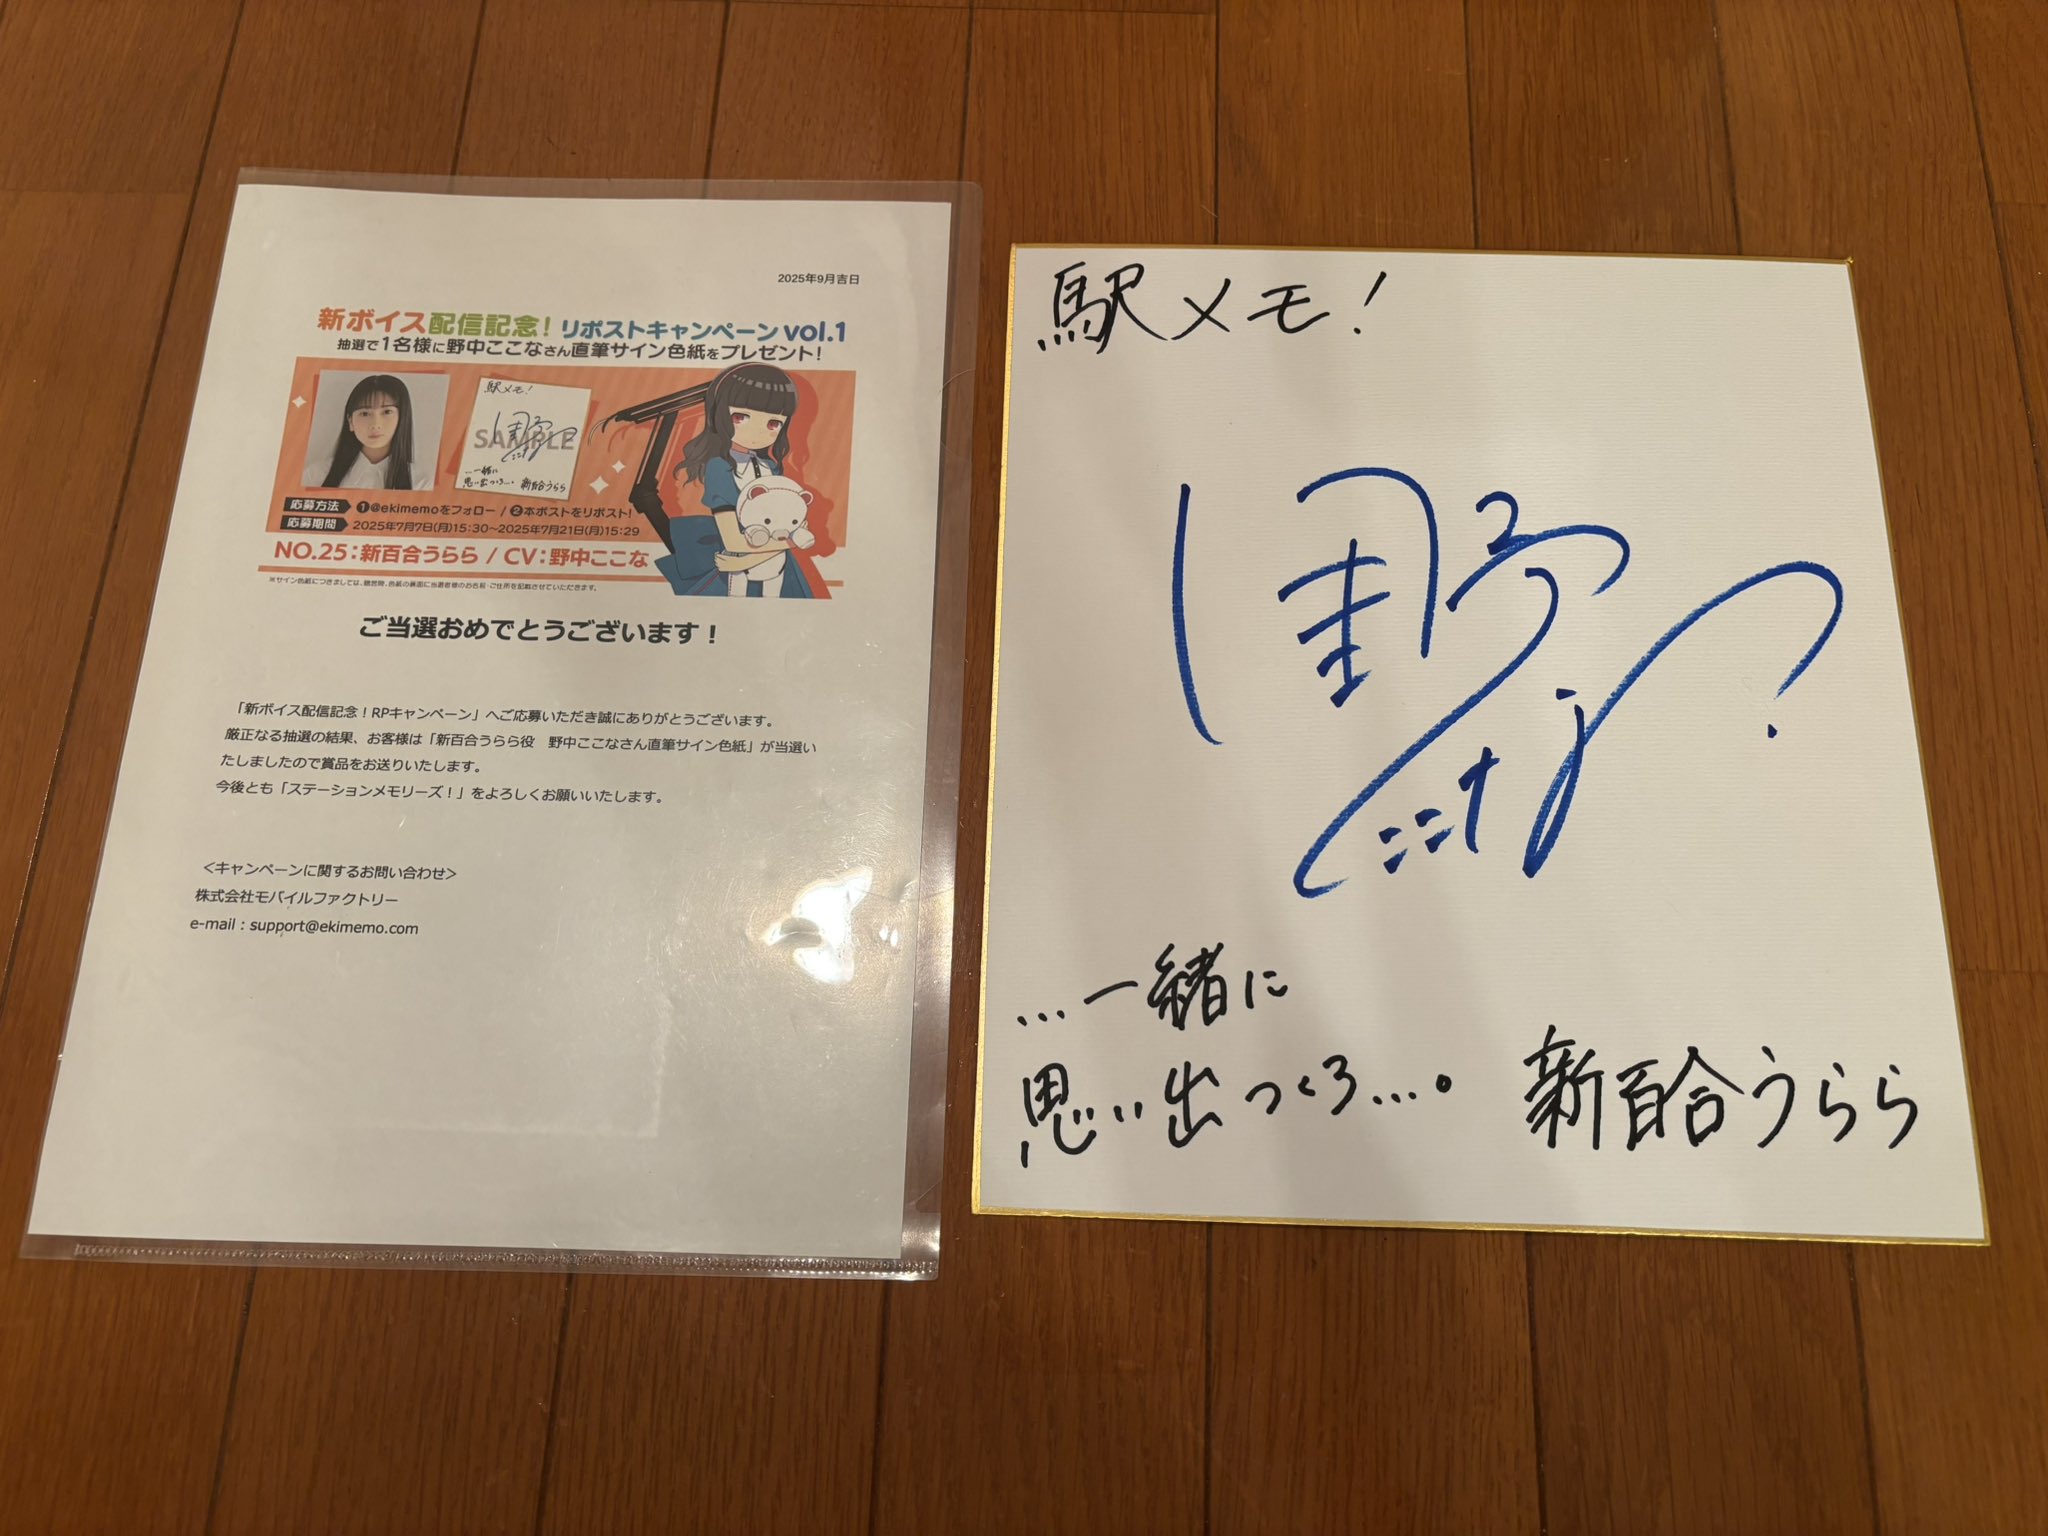 2025年9月吉日
新ボイス配信記念！リポストキャンペーンvol.1
抽選で1名様に野中ここなさん直筆サイン色紙をプレゼント！
駅メモ！
SAMPLE
…一緒に
思い出つくろ…。 新百合うらら
応募方法 ❶@ekimemoをフォロー / ❷本ポストをリポスト！
応募期間 2025年7月7日(月)15:30～2025年7月21日(月)15:29
NO.25：新百合うらら / CV：野中ここな
※サイン色紙につきましては、贈呈時、色紙の裏面に当選者様のお名前・ご住所を記載させていただきます。
ご当選おめでとうございます！
「新ボイス配信記念！RPキャンペーン」へご応募いただき誠にありがとうございます。
厳正なる抽選の結果、お客様は「新百合うらら役　野中ここなさん直筆サイン色紙」が当選い
たしましたので賞品をお送りいたします。
今後とも「ステーションメモリーズ！」をよろしくお願いいたします。
＜キャンペーンに関するお問い合わせ＞
株式会社モバイルファクトリー
e-mail：support@ekimemo.com
駅メモ！
野中
ここな
…一緒に
思い出つくろ…。 新百合うらら